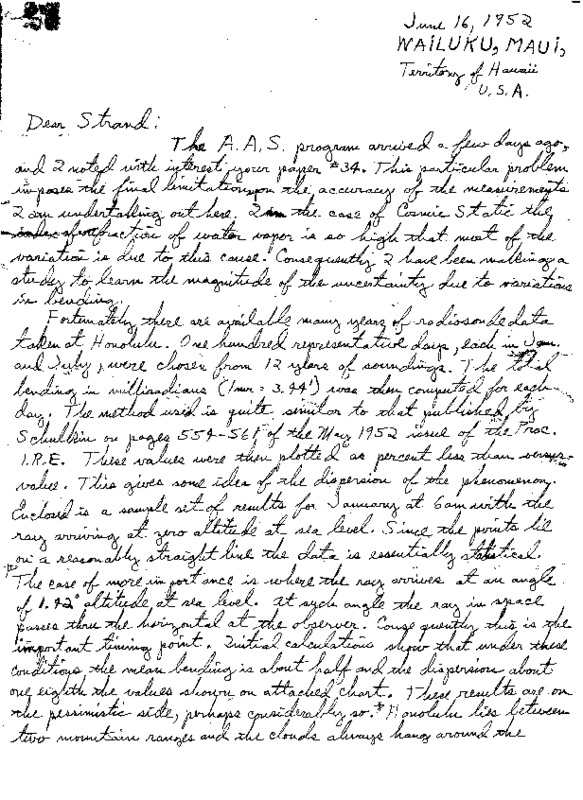 June 16, 1952
WAILUKU, MAUI,
Territory of Hawaii
U.S.A.
Dear Strand:
The A.A.S. program arrived a few days ago,
and I noted with interest your paper #34. This particular problem
imposes the final limitation upon the accuracy of the measurements
I am undertaking out here. In the case of Cosmic Static the
index of refraction of water vapor is so high that most of the
variation is due to this cause. Consequently I have been making a
study to learn the magnitude of the uncertainty due to variations
in bending.
Fortunately there are available many years of radiosonde data
taken at Honolulu. One hundred representative days, each in Jan.
and July, were chosen from 12 years of soundings. The total
bending in milliradians (1mr = 3.44') was then computed for each
day. The method used is quite similar to that published by
Schulkin on pages 554-561 of the May 1952 issue of the Proc.
I.R.E. These values were then plotted as percent less than versus
value. This gives some idea of the dispersion of the phenomenon.
Enclosed is a sample set of results for January at 6am with the
ray arriving at zero altitude at sea level. Since the points lie
on a reasonably straight line the data is essentially statistical.
The case of more importance is where the ray arrives at an angle
of 1.42° altitude at sea level. At such angle the ray in space
passes thru the horizontal at the observer. Consequently this is the
important timing point. Initial calculations show that under these
conditions the mean bending is about half and the dispersion about
one eighth the values shown on attached chart. These results are on
the pessimistic side, perhaps considerably so. Honolulu lies between
two mountain ranges and the clouds always hang around the